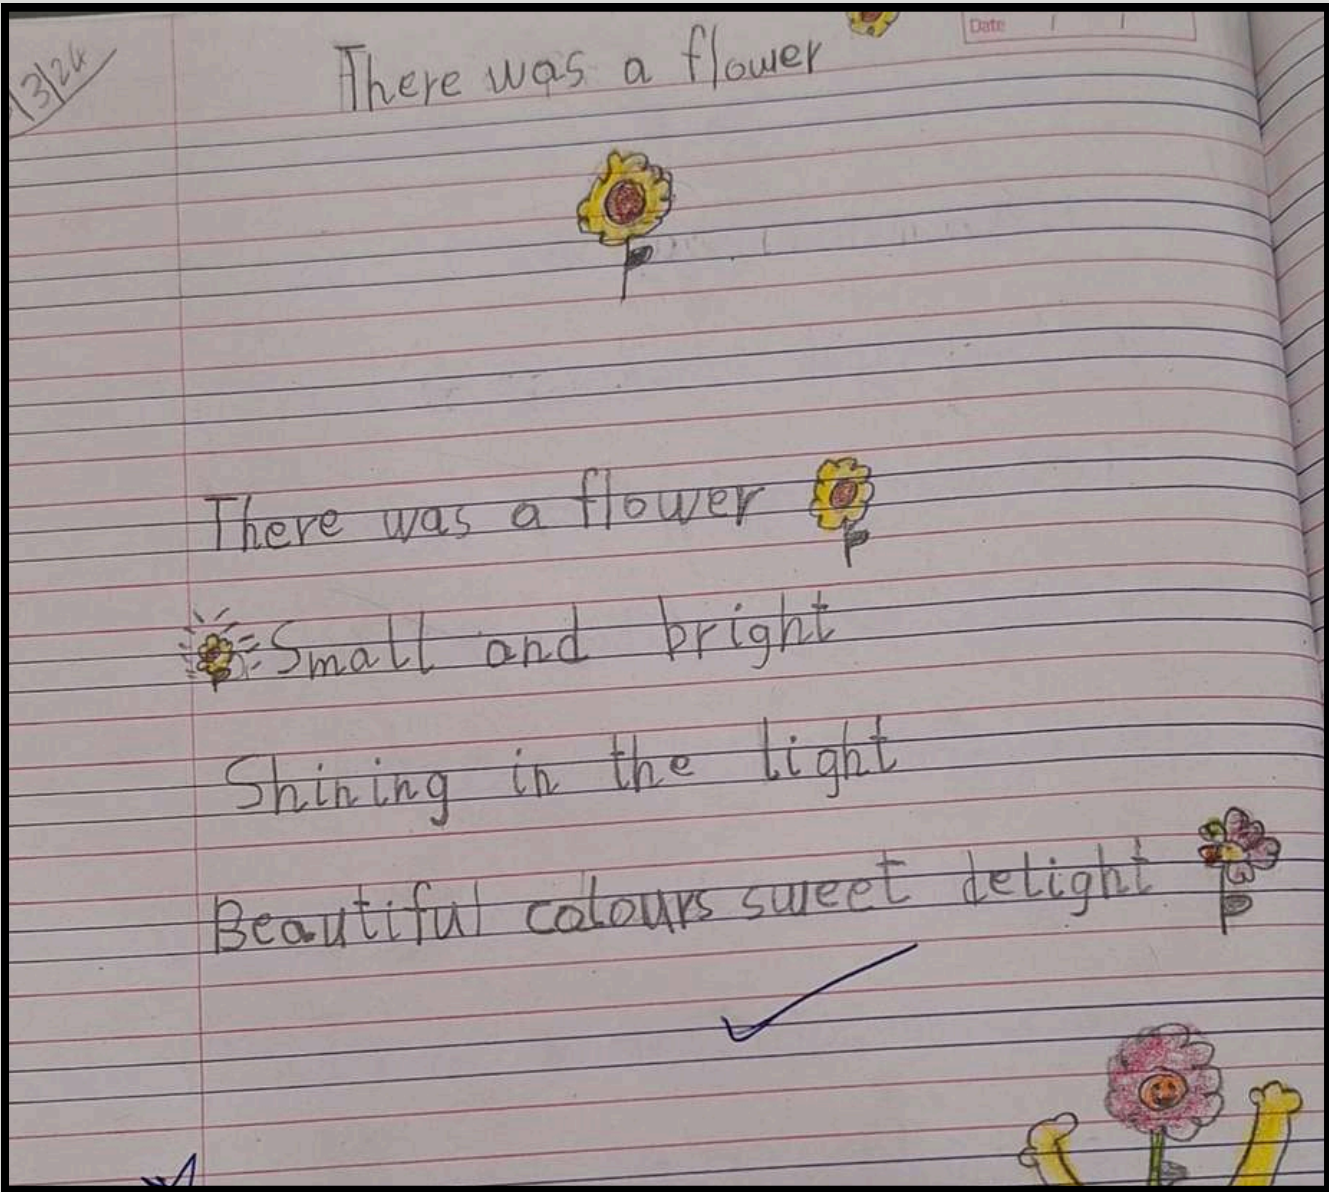 /3/24
Date / /
There was a flower
There was a flower
Small and bright
Shining in the light
Beautiful colours sweet delight